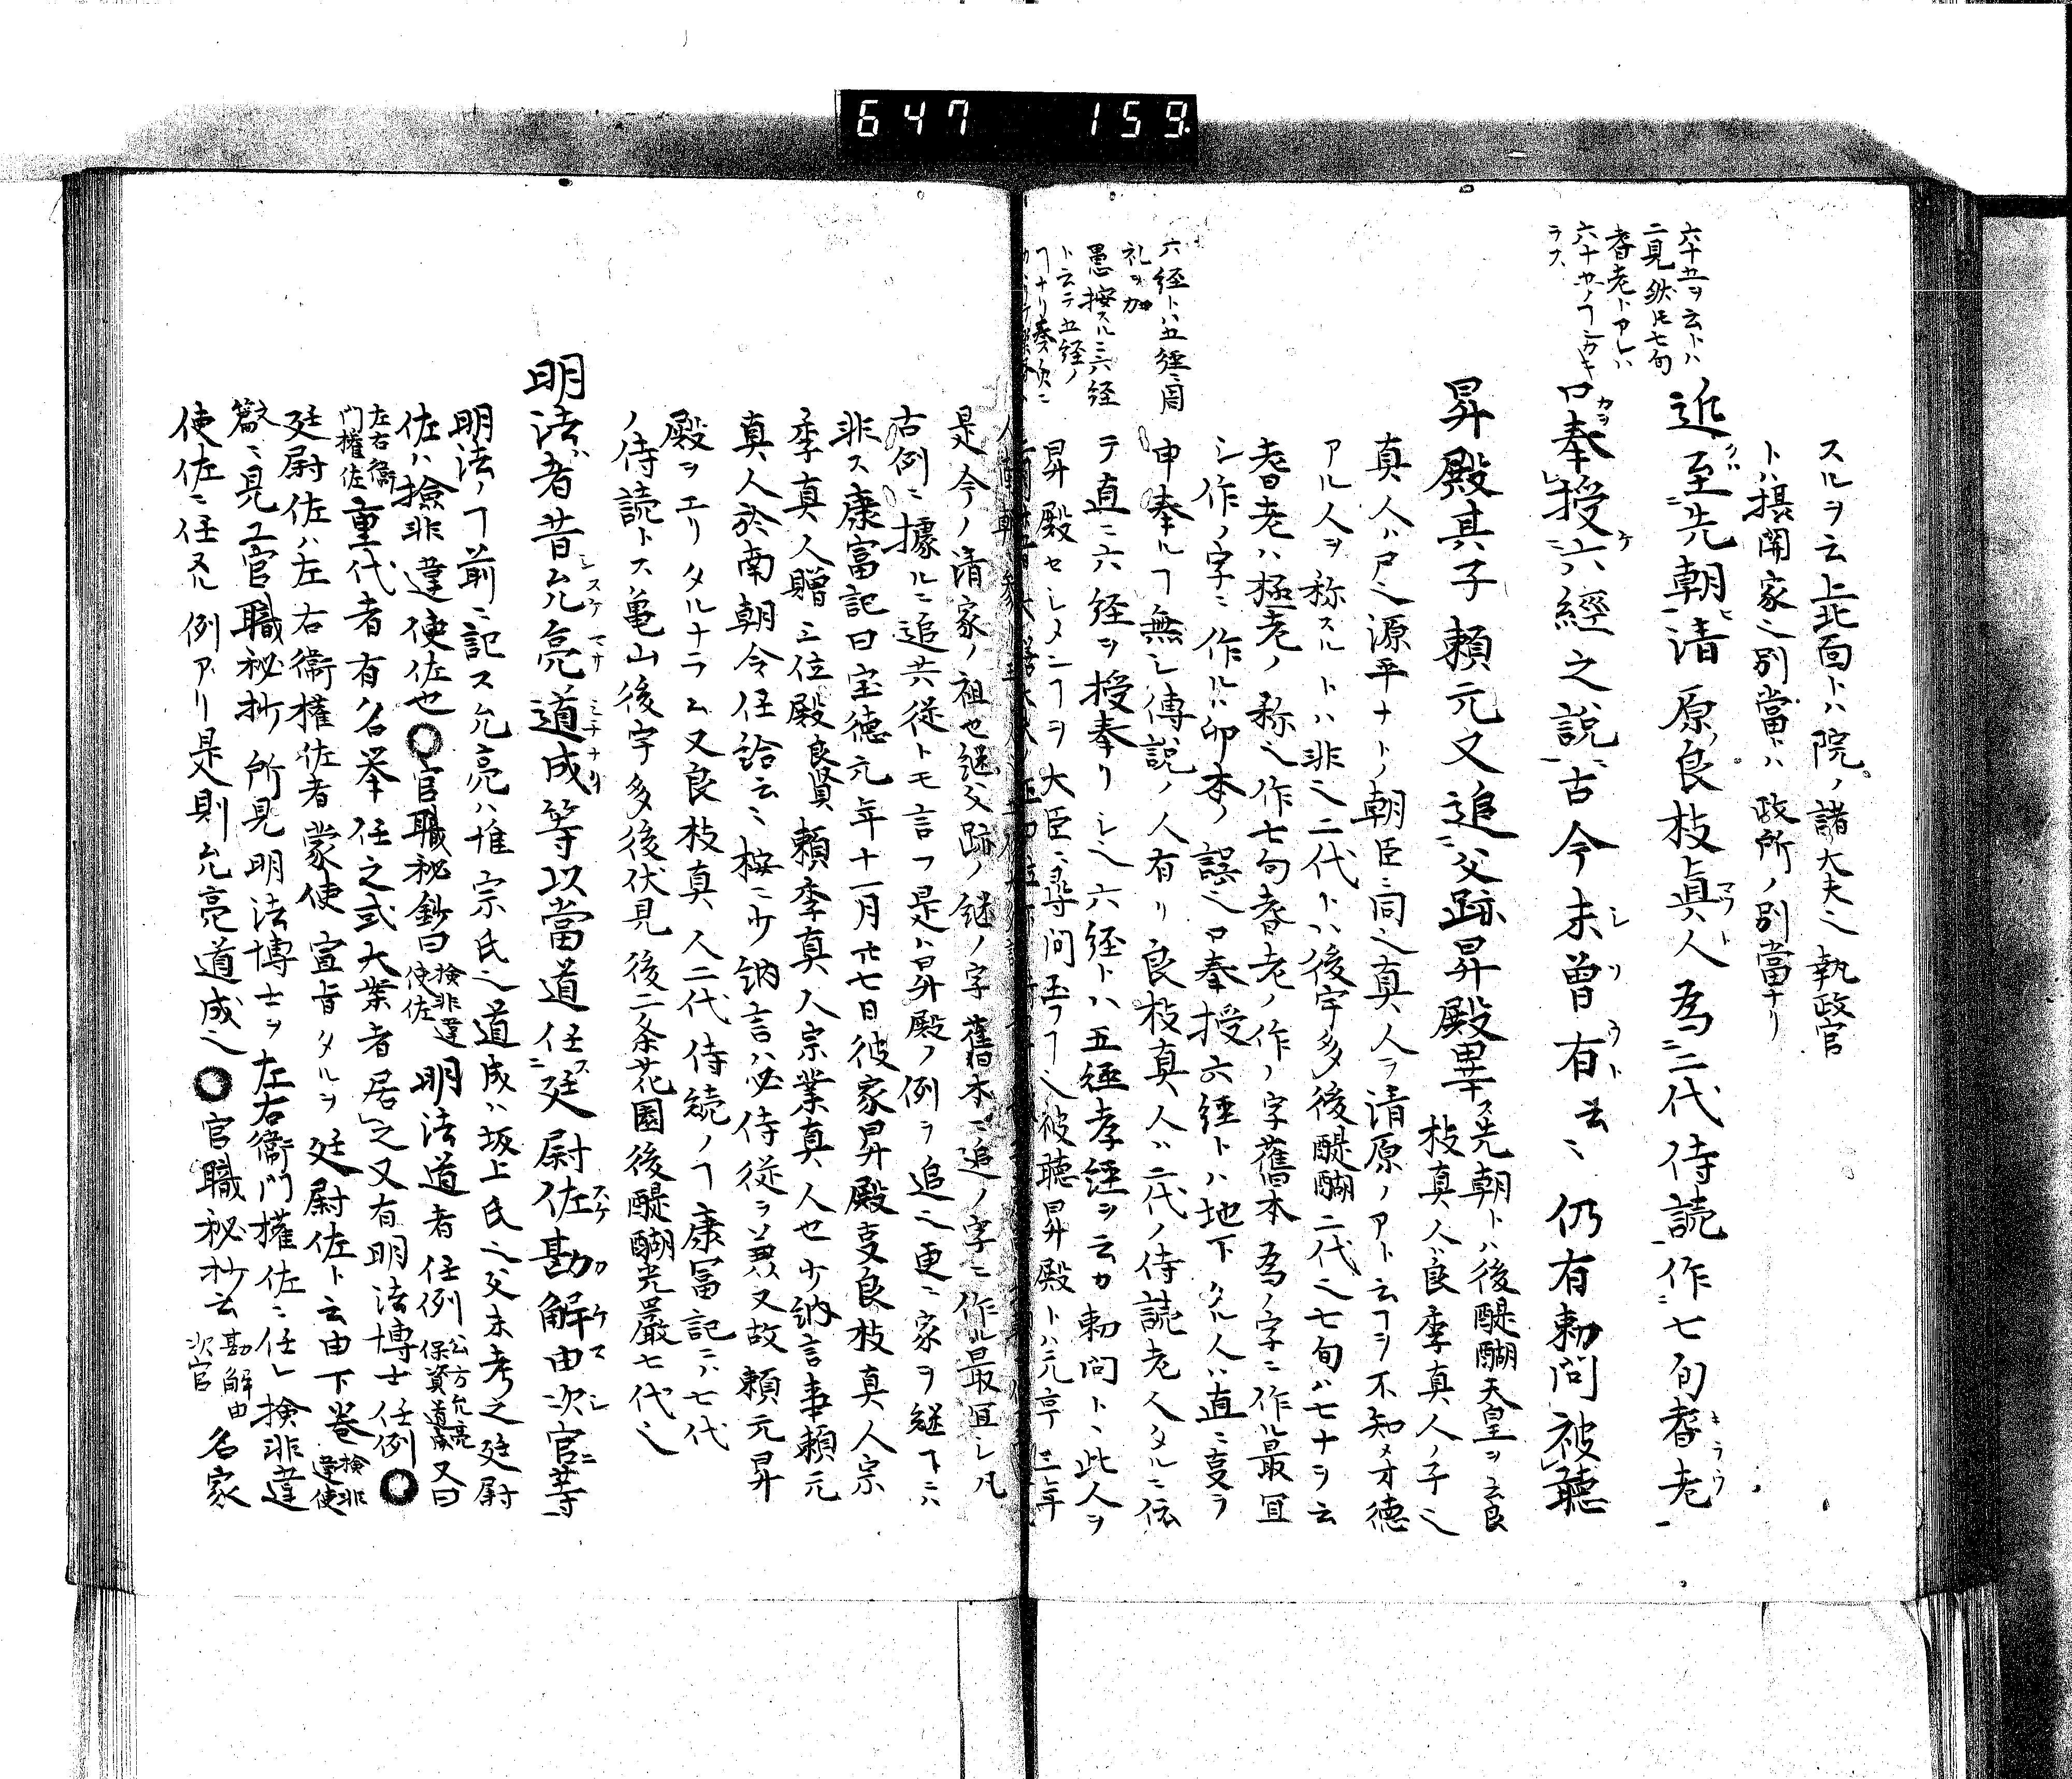 647 159
六十五ヲ云トハ
二見然ルニ七旬
耆老トアレハ
ラス
スルヲ云上北面トハ院ノ諸大夫之執政官
トハ摂関家之別當トハ政所ノ別當ナリ
近至先朝清原良枝真人為二代侍読作七旬耆老
口奉授六經之説古今未曽有云〻仍有勅問被聴
昇殿其子頼元又追父跡昇殿畢
先朝トハ後醍醐天皇ヲ云良
枝真人ハ良季真人ノ子之
真人ハ尸之源平ナトノ朝臣ニ同之真人ヲ清原ノアト云フヲ不知メ才徳
アル人ヲ称スルトハ非之二代トハ後宇多後醍醐二代之七旬ハ七十ヲ云
耆老ハ極老ノ称之作七旬耆老ノ作ノ字舊本為ノ字ニ作ル最冝
シ作ノ字ニ作ルハ印本ノ誤之口奉授六經トハ地下タル人ハ直ニ
申奉ルフ無シ傳説ノ人有リ良枝真人ハ二代ノ侍読老人タルニ
テ直ニ六経ヲ授奉リシ之六経トハ五經孝経ヲ云カ勅問トハ此人ヲ
昇殿セシメンフヲ大臣ニ尋問玉フ之被聴昇殿トハ元亨三年
六経トハ五経ニ周
礼ヲ加
愚按スルニ六経
ト云テ五経ノ
是今ノ清家ノ祖也継父跡ノ継ノ字舊本ニ追ノ字ニ作ル最冝シ凡
古例ニ據ルニ追共従トモ言フ是ハ昇殿ノ例ヲ追之更ニ家ヲ継フニハ
非ス康富記曰宝徳元年十一月廿七日彼家昇殿㕝良枝真人宗
季真人贈三位殿良賢頼季真人宗業真人也少納言事頼元
真人於南朝令任給云〻按ニ少納言ハ必侍従ヲ兼又故頼元昇
殿ヲエリタルナラム又良枝真人二代侍続ノフ康冨記ニハ七代
ノ侍読トス亀山後宇多後伏見後二条花園後醍醐光嚴七代之
明法者昔允亮道成等以當道任廷尉佐勘解由次官等
明法ノフ前ニ記ス允亮ハ惟宗氏之道成ハ坂上氏之父未考之廷尉
佐ハ撿非違使佐也○官職秘鈔曰檢非違使佐明法道者任例公方允亮保資道成又曰
左右衛門權佐重代者有名挙任之式大業者居之又有明法博士任例○
廷尉佐ハ左右衛權佐者蒙使宣旨タルヲ廷尉佐ト云由下巻檢非違使
篇ニ見エ官職秘抄所見明法博士ヲ左右衛門權佐ニ任シ検非違
使佐ニ任スル例アリ是則允亮道成之○官職秘抄云勘解由次官名家